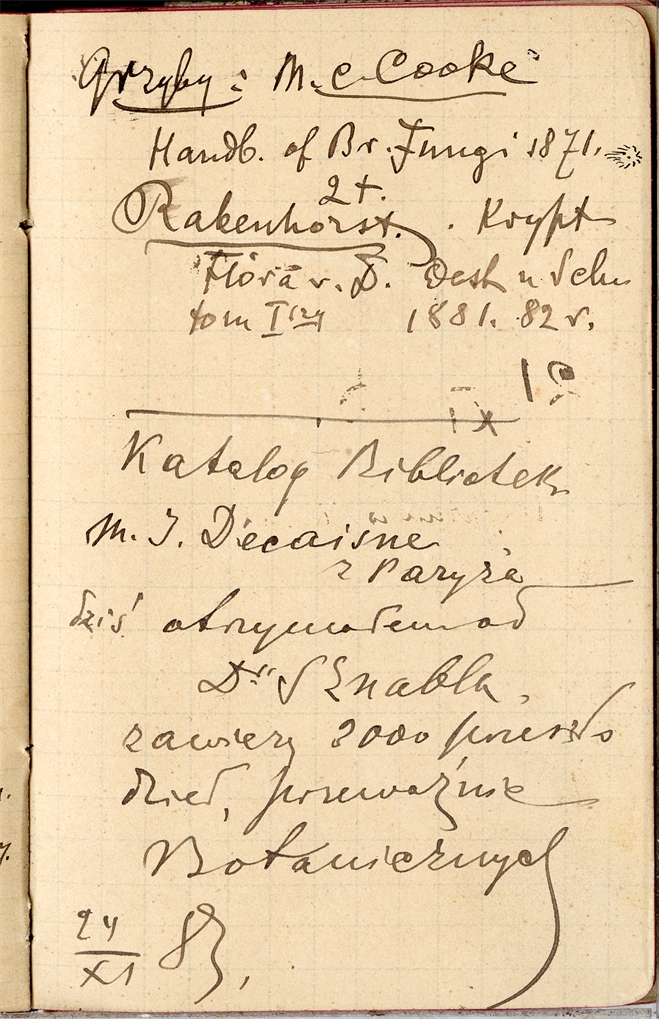 Grzyby: M. C. Cooke
Handb. of Br. Fungi 1871.
2 t.
Rabenhorst. Krypt
Flora v. D. Oest u Schw
tom I 1881. 82 r.
Katalog Bibliotek
M. J. Decaisne
z Paryża
dziś otrzymałem od
Dra Sznabla,
zawiera 2000 przeszło
dzieł, przeważnie
Botanicznych
24
XI 83,